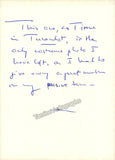 This one, as Timur
in Turandot, is the
only costume photo I
have left, as I had to
give every
in my